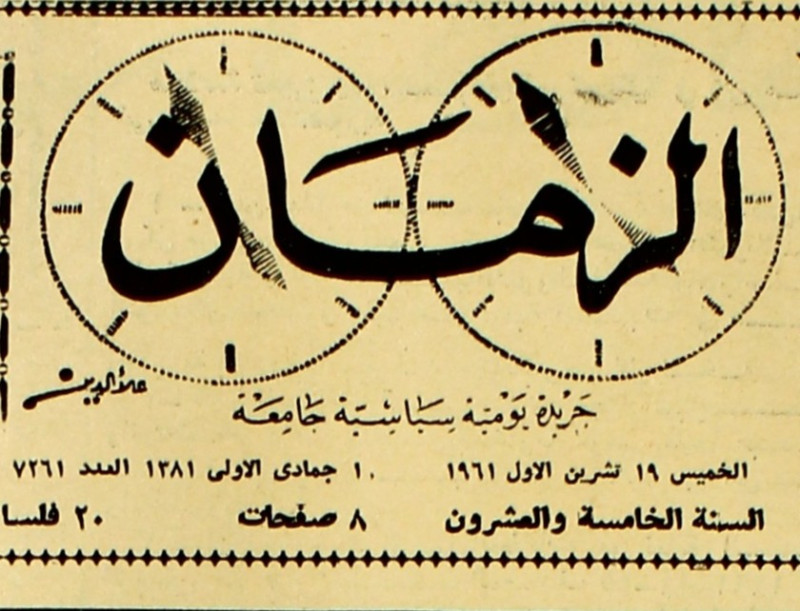 الزمان
علاء الدين
جريدة يومية سياسية جامعة
الخميس ١٩ تشرين الاول ١٩٦١ ١٠ جمادى الاولى ١٣٨١ العدد ٧٢٦١
السنة الخامسة والعشرون ٨ صفحات ٢٠ فلسا